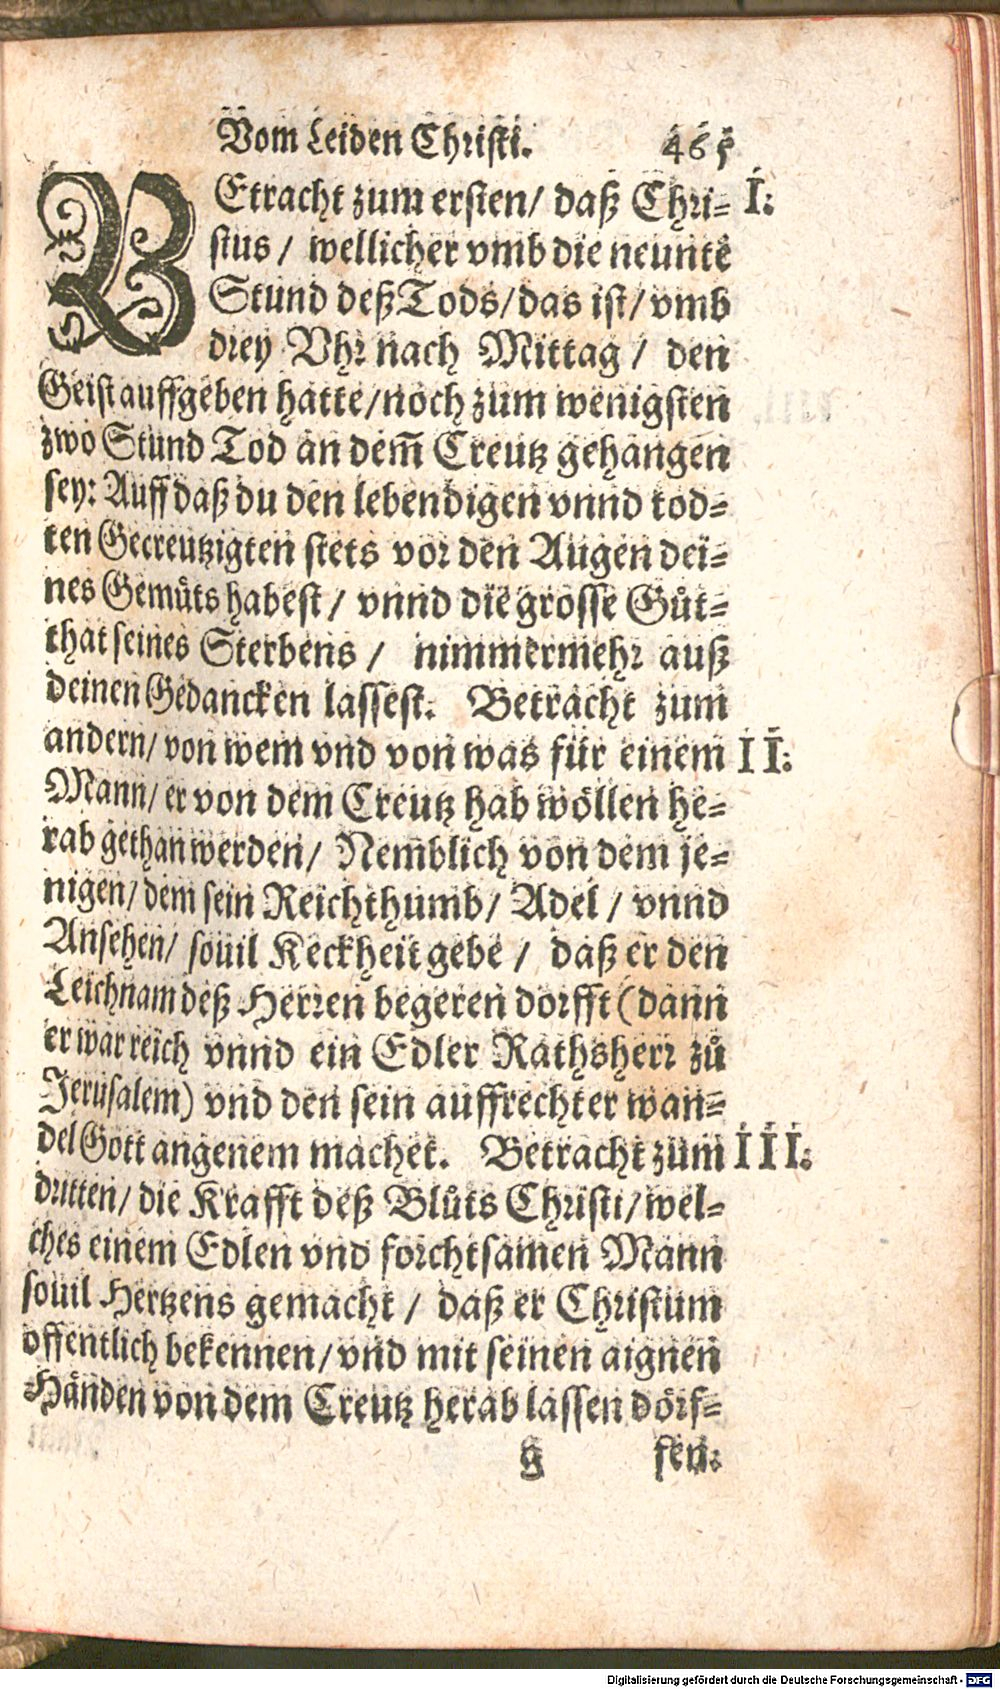 Vom Leiden Christi. 465
BEtracht zum ersten/ daß Chri- I.
stus/ wellicher vmb die neunte
Stund deß Tods/das ist/vmb
drey Vhr nach Mittag/ den
Geist auffgeben hatte/noch zum wenigsten
zwo Stund Tod an dem̃ Creutz gehangen
sey: Auff daß du den lebendigen vnnd tod-
ten Gecreutzigten stets vor den Augen dei-
nes Gemuͤts habest/ vnnd die grosse Guͦt-
that seines Sterbens/ nimmermehr auß
deinen Gedancken lassest. Betracht zum
andern/ von wem vnd von was für einem II.
Mann/ er von dem Creutz hab woͤllen he-
rab gethan werden/ Nemblich von dem je-
nigen/ dem sein Reichthumb/ Adel/ vnnd
Ansehen/ souil Keckheit gebe/ daß er den
Leichnam deß Herren begeren dorfft (dann
er war reich vnnd ein Edler Rathsherr zuͦ
Jerusalem) vnd den sein auffrechter wan-
del Gott angenem machet. Betracht zum III.
dritten/ die Krafft deß Bluͦts Christi/ wel-
ches einem Edlen vnd forchtsamen Mann
souil Hertzens gemacht/ daß er Christum
offentlich bekennen/vnd mit seinen aignen
Haͤnden von dem Creutz herab lassen doͤrf-
g fen.
Digitalisierung gefördert durch die Deutsche Forschungsgemeinschaft - DFG